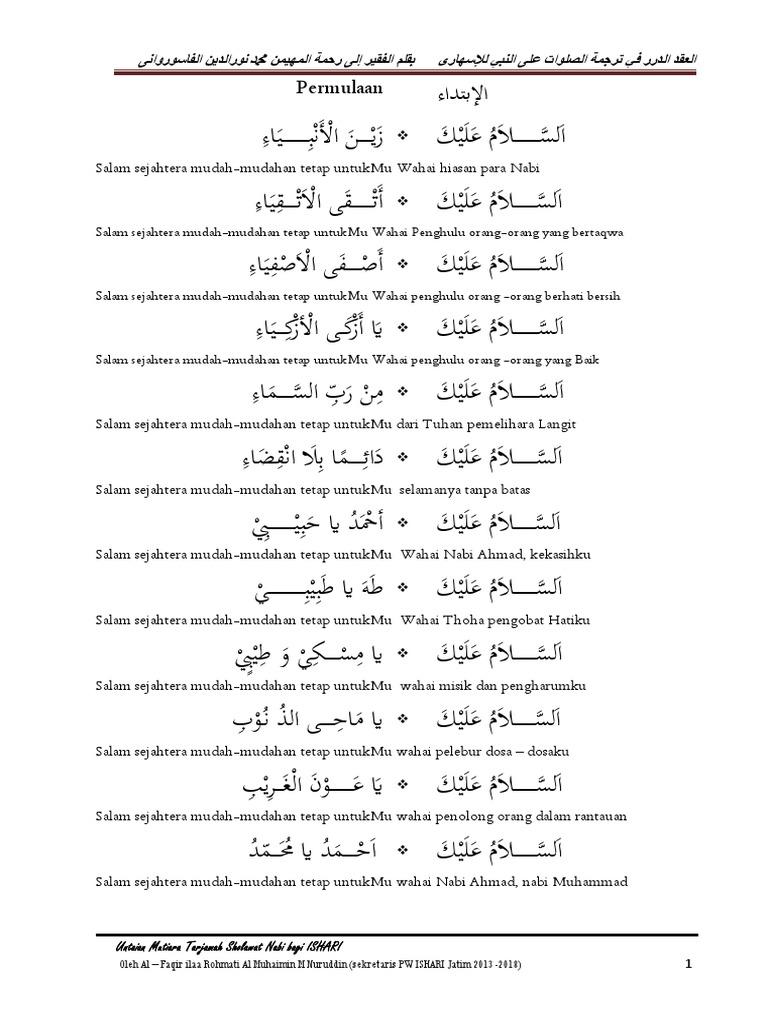 العقد الدرر في ترجمة الصلوات على النبي للإسهارى بقلم الفقير إلى رحمة المهيمن محمد نورالدين الفاسوروانى
الإبتداء Permulaan
اَلسَّـــــلاَمُ عَلَيْكَ ❖ زَيْـــنَ الْأَنْبِـــــيَاءِ
Salam sejahtera mudah-mudahan tetap untukMu Wahai hiasan para Nabi
اَلسَّـــــلاَمُ عَلَيْكَ ❖ أَتْـــقَى الْاَتْـــقِيَاءِ
Salam sejahtera mudah-mudahan tetap untukMu Wahai Penghulu orang-orang yang bertaqwa
اَلسَّـــــلاَمُ عَلَيْكَ ❖ أَصْـــفَى الْاَصْفِيَاءِ
Salam sejahtera mudah-mudahan tetap untukMu Wahai penghulu orang -orang berhati bersih
اَلسَّـــــلاَمُ عَلَيْكَ ❖ يَا أَزْكَـى الْأَزْكِـيَاءِ
Salam sejahtera mudah-mudahan tetap untukMu Wahai penghulu orang -orang yang Baik
اَلسَّـــــلاَمُ عَلَيْكَ ❖ مِنْ رَبِّ السَّـــمَاءِ
Salam sejahtera mudah-mudahan tetap untukMu dari Tuhan pemelihara Langit
اَلسَّـــــلاَمُ عَلَيْكَ ❖ دَائِـــمًا بِلَا انْقِضَاءِ
Salam sejahtera mudah-mudahan tetap untukMu selamanya tanpa batas
اَلسَّـــــلاَمُ عَلَيْكَ ❖ أحْمَدُ يا حَبِيْـــــبِيْ
Salam sejahtera mudah-mudahan tetap untukMu Wahai Nabi Ahmad, kekasihku
اَلسَّـــــلاَمُ عَلَيْكَ ❖ طَهَ يا طَبِيْبِـــــيْ
Salam sejahtera mudah-mudahan tetap untukMu Wahai Thoha pengobat Hatiku
اَلسَّـــــلاَمُ عَلَيْكَ ❖ يا مِسْـــكِيْ وَ طِيْبِيْ
Salam sejahtera mudah-mudahan tetap untukMu wahai misik dan pengharumku
اَلسَّـــــلاَمُ عَلَيْكَ ❖ يا مَاحِـــى الذُ نُوْبِ
Salam sejahtera mudah-mudahan tetap untukMu wahai pelebur dosa – dosaku
اَلسَّـــــلاَمُ عَلَيْكَ ❖ يَا عَـــوْنَ الْغَـرِيْبِ
Salam sejahtera mudah-mudahan tetap untukMu wahai penolong orang dalam rantauan
اَلسَّـــــلاَمُ عَلَيْكَ ❖ اَحْـــمَدُ يا مُحَـــمَّدُ
Salam sejahtera mudah-mudahan tetap untukMu wahai Nabi Ahmad, nabi Muhammad
Untaian Mutiara Tarjamah Sholawat Nabi bagi ISHARI
Oleh Al – Faqir ilaa Rohmati Al Muhaimin M Nuruddin (sekretaris PW ISHARI Jatim 2013 -2018) 1